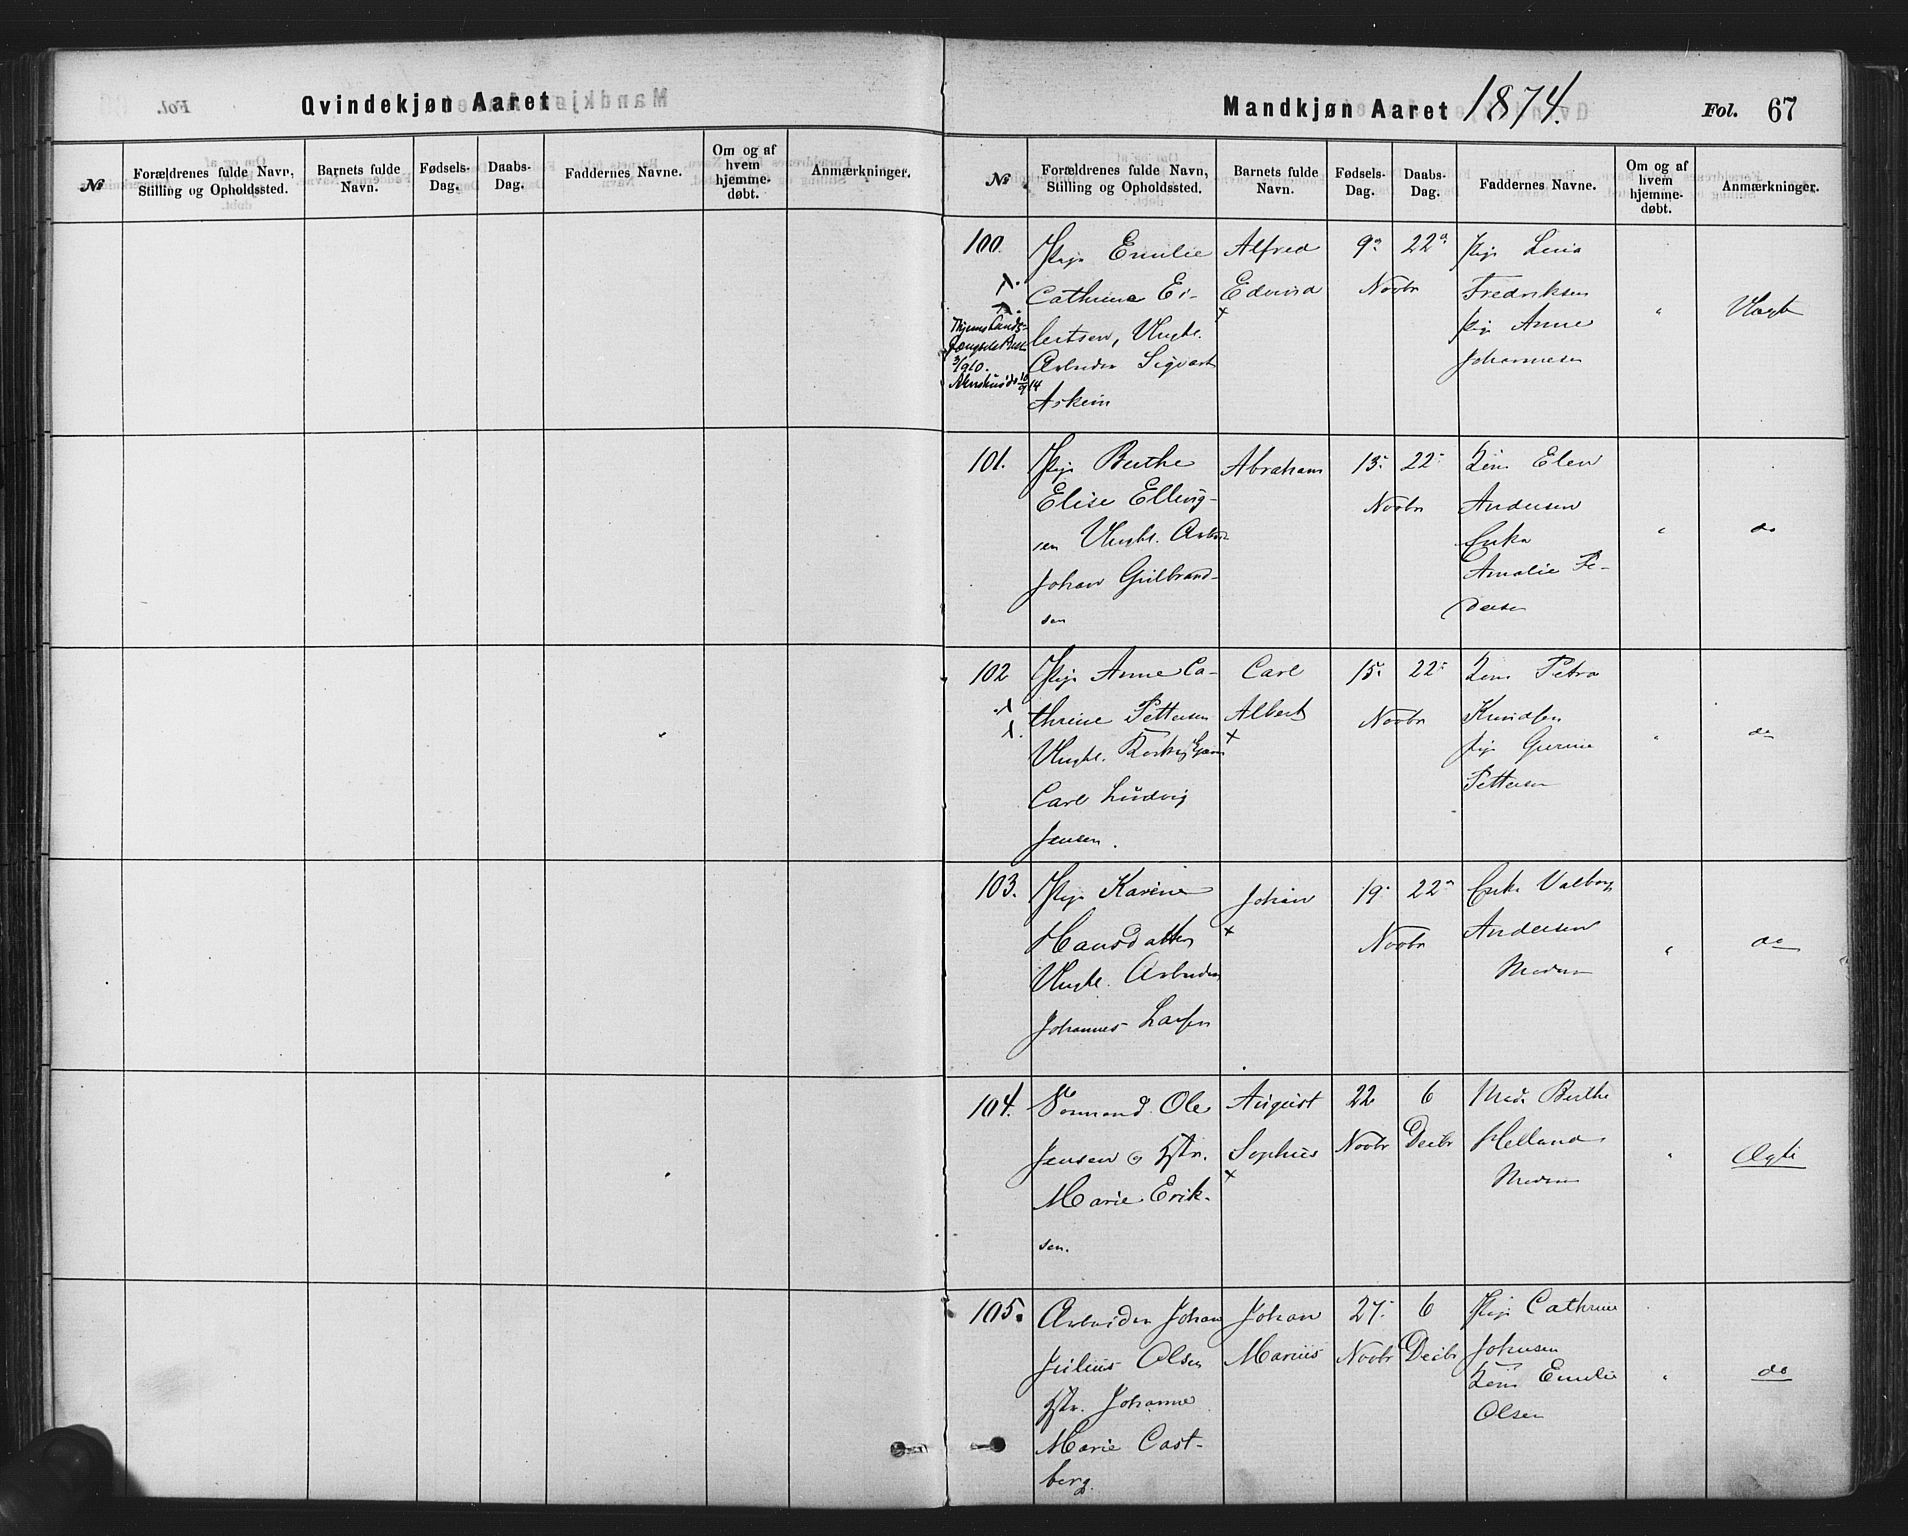 Qvindekjøn Aaret
Fol.
№
Forældrenes fulde Navn,
Stilling og Opholdssted.
Barnets fulde
Navn.
Fødsels-
Dag.
Daabs-
Dag.
Faddernes Navne.
Om og af
hvem
hjemme-
døbt.
Anmærkninger.
Mandkjøn Aaret 1874.
Fol. 67
№
Forældrenes fulde Navn,
Stilling og Opholdssted.
Barnets fulde
Navn.
Fødsels-
Dag.
Daabs-
Dag.
Faddernes Navne.
Om og af
hvem
hjemme-
døbt.
Anmærkninger.
100.
Pige Emilie
Cathrina Ei-
lertsen, Ungkl.
Arbeider Sigvart
Askeim
Alfred
Edvard
9
22
Novbr
Pige Lina
Fredriksen
Pige Anne
Johannesen
"
Uægte
101.
Pige Berthe
Elise Elling-
sen Ungkl. Arbeid
Johan Gulbrand-
sen
Abraham
13
22
Novbr
Elen
Andersen
Enke
Amalie Pe-
dersen
"
do
102
Pige Anne Ca-
thrine Pettersen
Ungkl.
Carl Ludvig
Jensen.
Carl
Albert
15
22
Novbr
Petra
Knudsen
Pige Gurine
Pettersen
"
do
103.
Pige Karine
Hansdatter
Ungkl. Arbeider
Johannes Larsen
Johan
19
22
Novbr
Enke Valborg
Andersen
Moderen
"
do
104.
Formand Ole
Jensen og Hstr.
Marie Erik-
sen.
August
Sophus
22
Novbr
6
Decbr
Mad. Berthe
Helland
Moderen
"
Ægte
105.
Arbeider Johan
Julius Olsen
Hstr. Johanne
Marie Cast-
berg.
Johan
Marius
27
Novbr
6
Decbr
Pige Cathrine
Johnsen
Emilie
Olsen
"
do